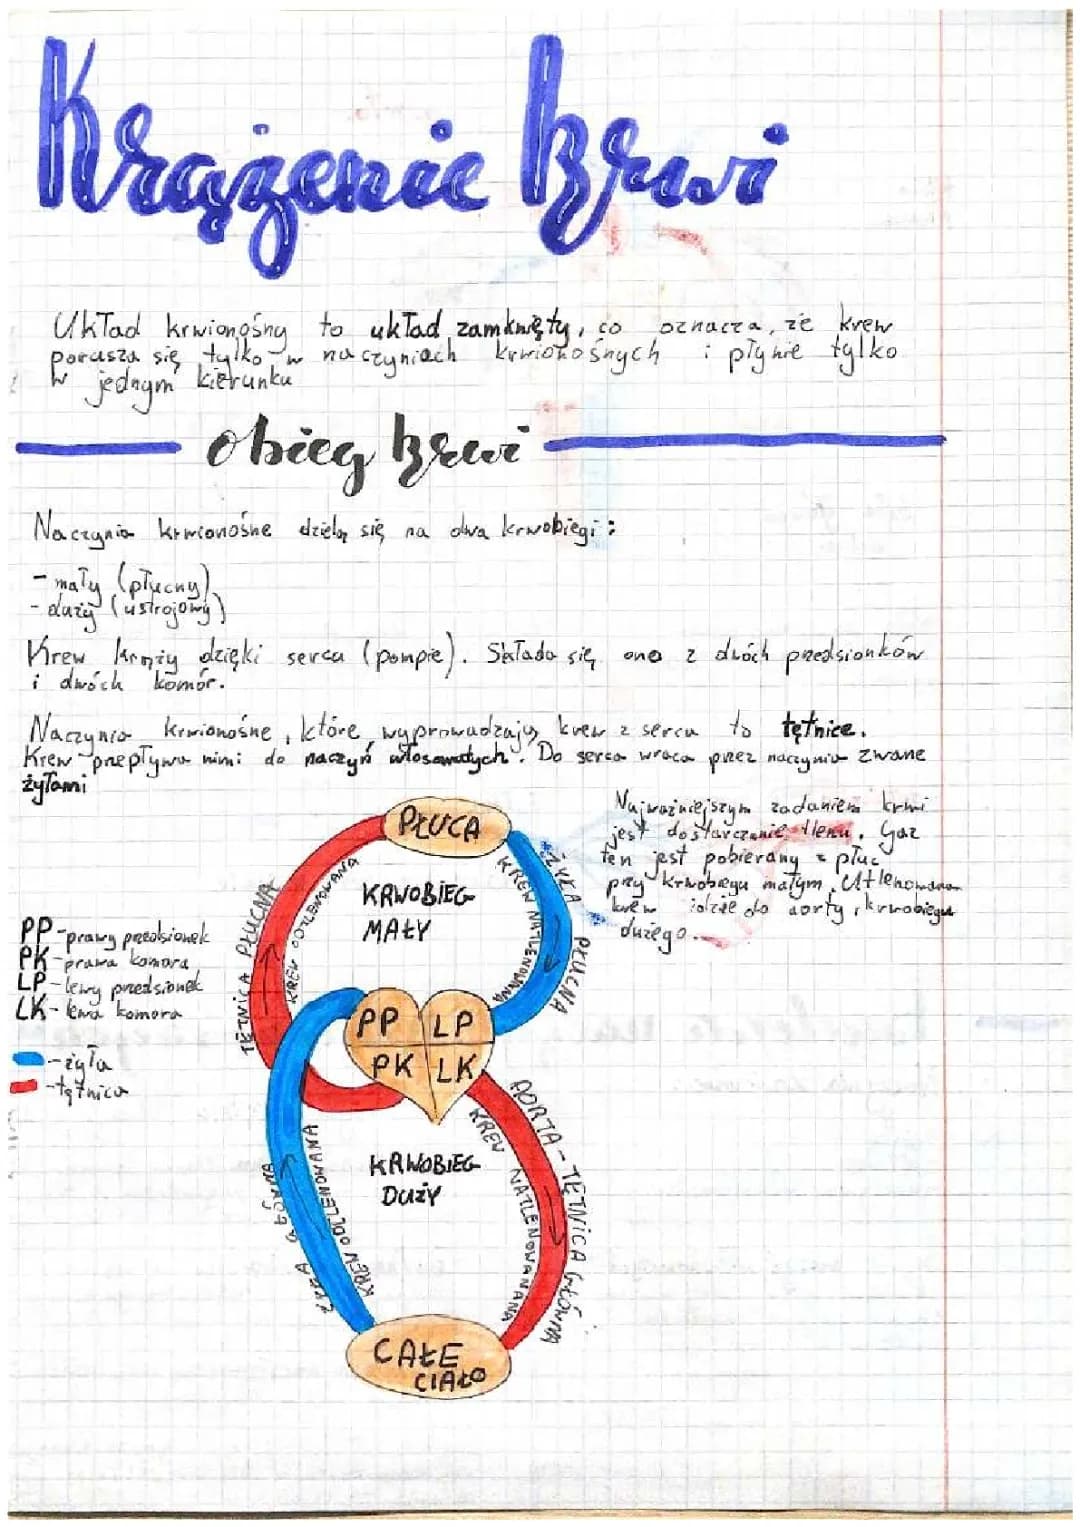 Krążenie krwi
Układ krwionośny to układ zamknięty, co oznacza, że krew
porusza się tylko w naczyniach krwionośnych i płynie tylko
w jednym kierunku
obieg krwi
Naczynia krwionośne dzielą się na dwa krwobiegi:
- mały (płucny)
- duży (ustrojowy)
Krew krąży dzięki sercu (pompie). Składa się ono z dwóch przedsionków
i dwóch komór.
Naczynia krwionośne, które wyprowadzają krew z serca to tętnice.
Krew przepływa nimi do naczyń włosowatych. Do serca wraca przez naczynia zwane
żyłami
Najważniejszym zadaniem krwi
jest dostarczanie tlenu. Gaz
ten jest pobierany z płuc
przy krwobiegu małym. Utlenowana
krew idzie do aorty i krwobiegu
dużego.
PŁUCA
KRWOBIEG
MAŁY
TĘTNICA PŁUCNA
KREW ODTLENOWANA
ŻYŁA PŁUCNA
KREW NATLENOWANA
PP - prawy przedsionek
PK - prawa komora
LP - lewy przedsionek
LK - lewa komora
- żyła
- tętnica
PP LP
PK LK
KRWOBIEG
DUŻY
ŻYŁA GŁÓWNA
KREW ODTLENOWANA
AORTA - TĘTNICA GŁÓWNA
KREW NATLENOWANANA
CAŁE
CIAŁO